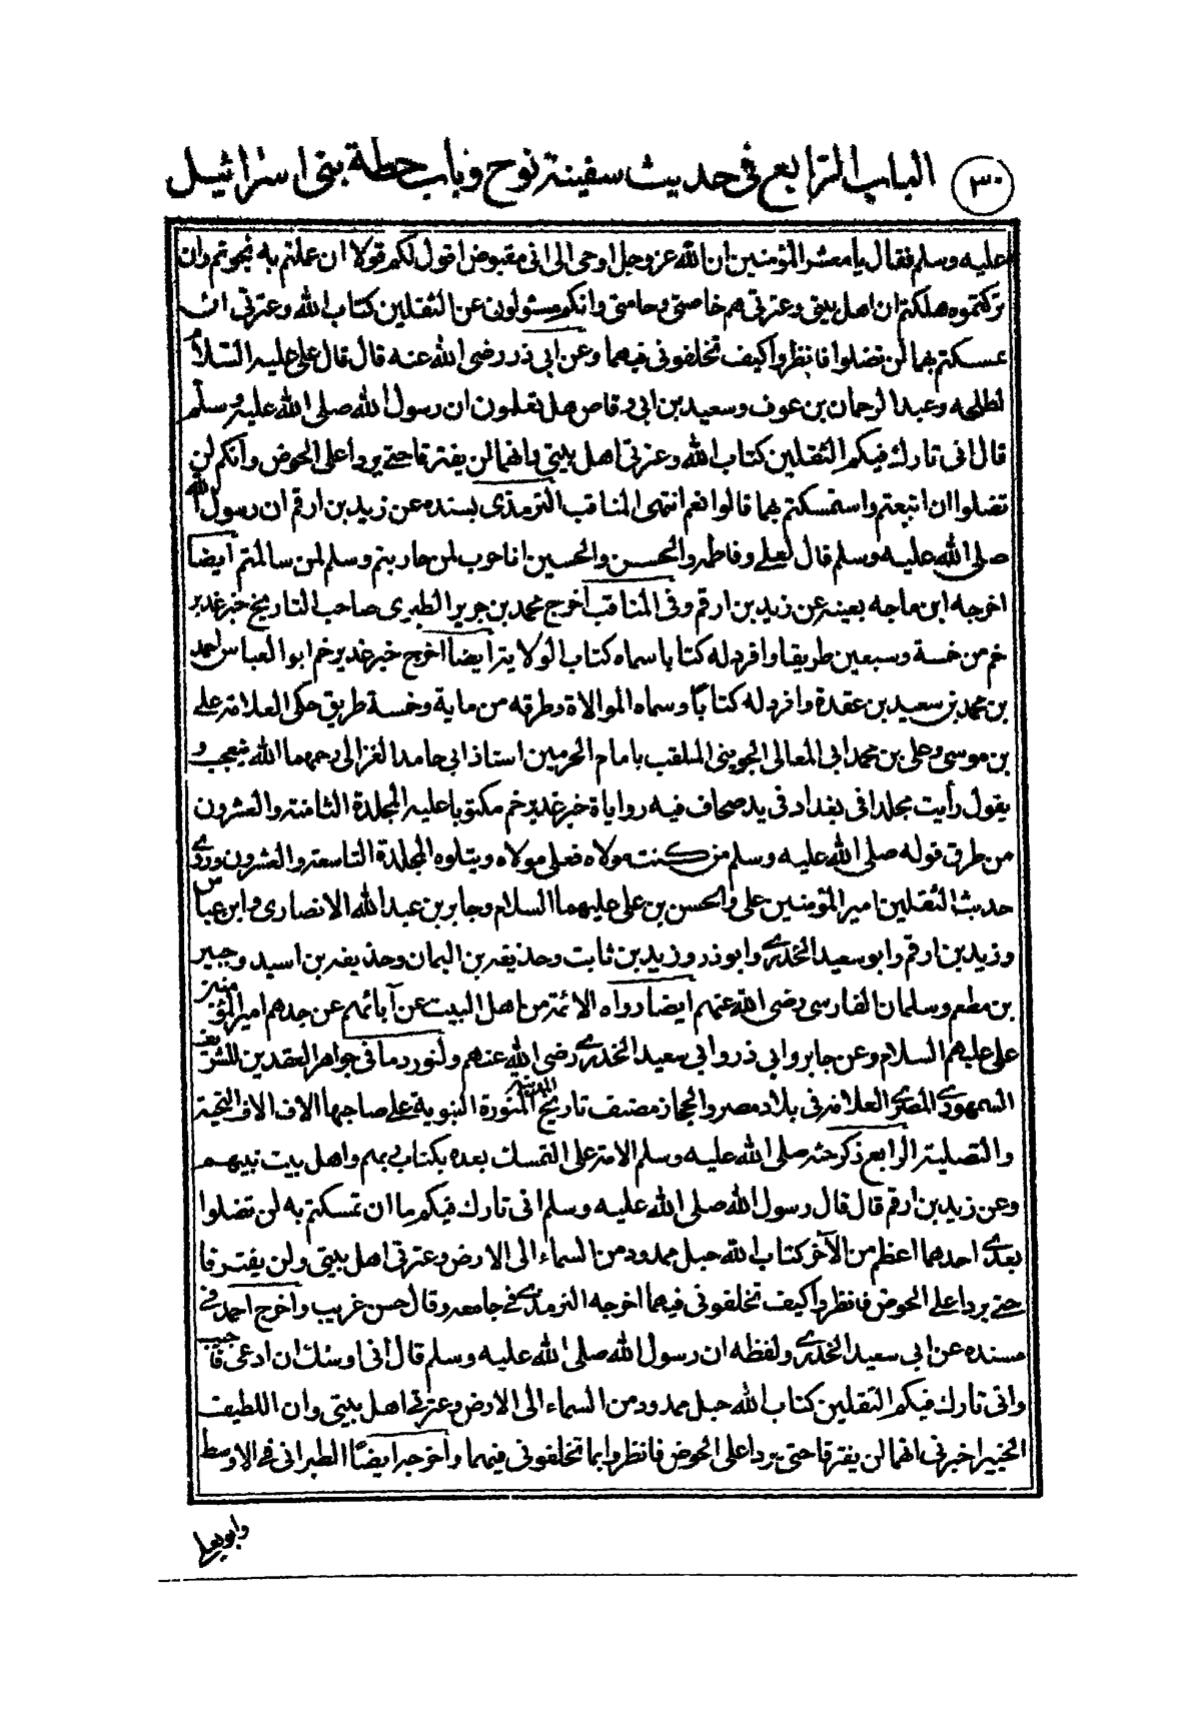 ٣٠ الباب الرابع في حديث سفينة نوح وباب حطة بني اسرائيل
عليه وسلم فقال يا معشر المؤمنين ان الله عز وجل اوحى الى اني مقبوض اقول لكم قولا ان عملتم به نجوتم وان
تركتموه هلكتم ان اهل بيتي وعترتي هم خاصتي وحامتي وانكم مسئولون عن الثقلين كتاب الله وعترتي ان
تمسكتم بهما لن تضلوا فانظروا كيف تخلفوني فيهما وعن ابي ذر رضي الله عنه قال قال علي عليه السلام
لطلحه وعبد الرحمان بن عوف وسعيد بن ابي وقاص هل تعلمون ان رسول الله صلى الله عليه وسلم
قال اني تارك فيكم الثقلين كتاب الله وعترتي اهل بيتي وانهما لن يفترقا حتى يردا على الحوض وانكم لن
تضلوا ان اتبعتم واستمسكتم بهما قالوا نعم انتهى المناقب الترمذي بسنده عن زيد بن ارقم ان رسول الله
صلى الله عليه وسلم قال لعلي وفاطمه والحسن والحسين انا حرب لمن حاربتم وسلم لمن سالمتم ايضا
اخرجه ابن ماجه بعينه عن زيد بن ارقم وفي المناقب اخرج محمد بن جرير الطبرى صاحب التاريخ خبر غدير
خم من خمسة وسبعين طريقا وافرد له كتابا سماه كتاب الولاية ايضا اخرج خبر غدير خم ابو العباس احمد
بن محمد بن سعيد بن عقدة وافرد له كتابا وسماه الموالاة وطرقه من ماية وخمسة طريق حكى العلامة علي
بن موسى وعلي بن محمد ابي المعالي الجويني الملقب بامام الحرمين استاذ ابي حامد الغزالى رحمهما الله يتعجب و
يقول رأيت مجلدا في بغداد في يد صحاف فيه روايات خبر غدير خم مكتوبا عليه المجلدة الثامنة والعشرون
من طرق قوله صلى الله عليه وسلم من كنت مولاه فعلي مولاه ويتلوه المجلدة التاسعة والعشرون وروى
حديث الثقلين امير المؤمنين علي والحسن بن علي عليهما السلام وجابر بن عبد الله الانصاري وابن عباس
وزيد بن ارقم وابو سعيد الخدري وابو ذر وزيد بن ثابت وحذيفة بن اليمان وحذيفة بن اسيد وجبير
بن مطعم وسلمان الفارسي رضي الله عنهم ايضا رواه الائمة من اهل البيت عن آبائهم عن جدهم امير المؤمنين
علي عليهم السلام وعن جابر وابي ذر وابي سعيد الخدري رضي الله عنهم ولنورد ما في جواهر العقدين للشريف
السمهودي المصري العلامة في بلاد مصر والحجاز مصنف تاريخ المدينة المنورة النبوية على صاحبها الاف الاف التحية
والتصلية الرابع ذكر حثه صلى الله عليه وسلم الامة على التمسك بعده بكتاب ربهم واهل بيت نبيهم
وعن زيد بن ارقم قال قال رسول الله صلى الله عليه وسلم اني تارك فيكم ما ان تمسكتم به لن تضلوا
بعدي احدهما اعظم من الآخر كتاب الله حبل ممدود من السماء الى الارض وعترتي اهل بيتي ولن يفترقا
حتى يردا على الحوض فانظروا كيف تخلفوني فيهما اخرجه الترمذي في جامعه وقال حسن غريب واخرج احمد في
مسنده عن ابي سعيد الخدري ولفظه ان رسول الله صلى الله عليه وسلم قال اني اوشك ان ادعى فاجيب
واني تارك فيكم الثقلين كتاب الله حبل ممدود من السماء الى الارض وعترتي اهل بيتي وان اللطيف
الخبير اخبرني انهما لن يفترقا حتى يردا على الحوض فانظروا بما تخلفوني فيهما واخرجه ايضًا الطبراني في الاوسط
وابو يعلى